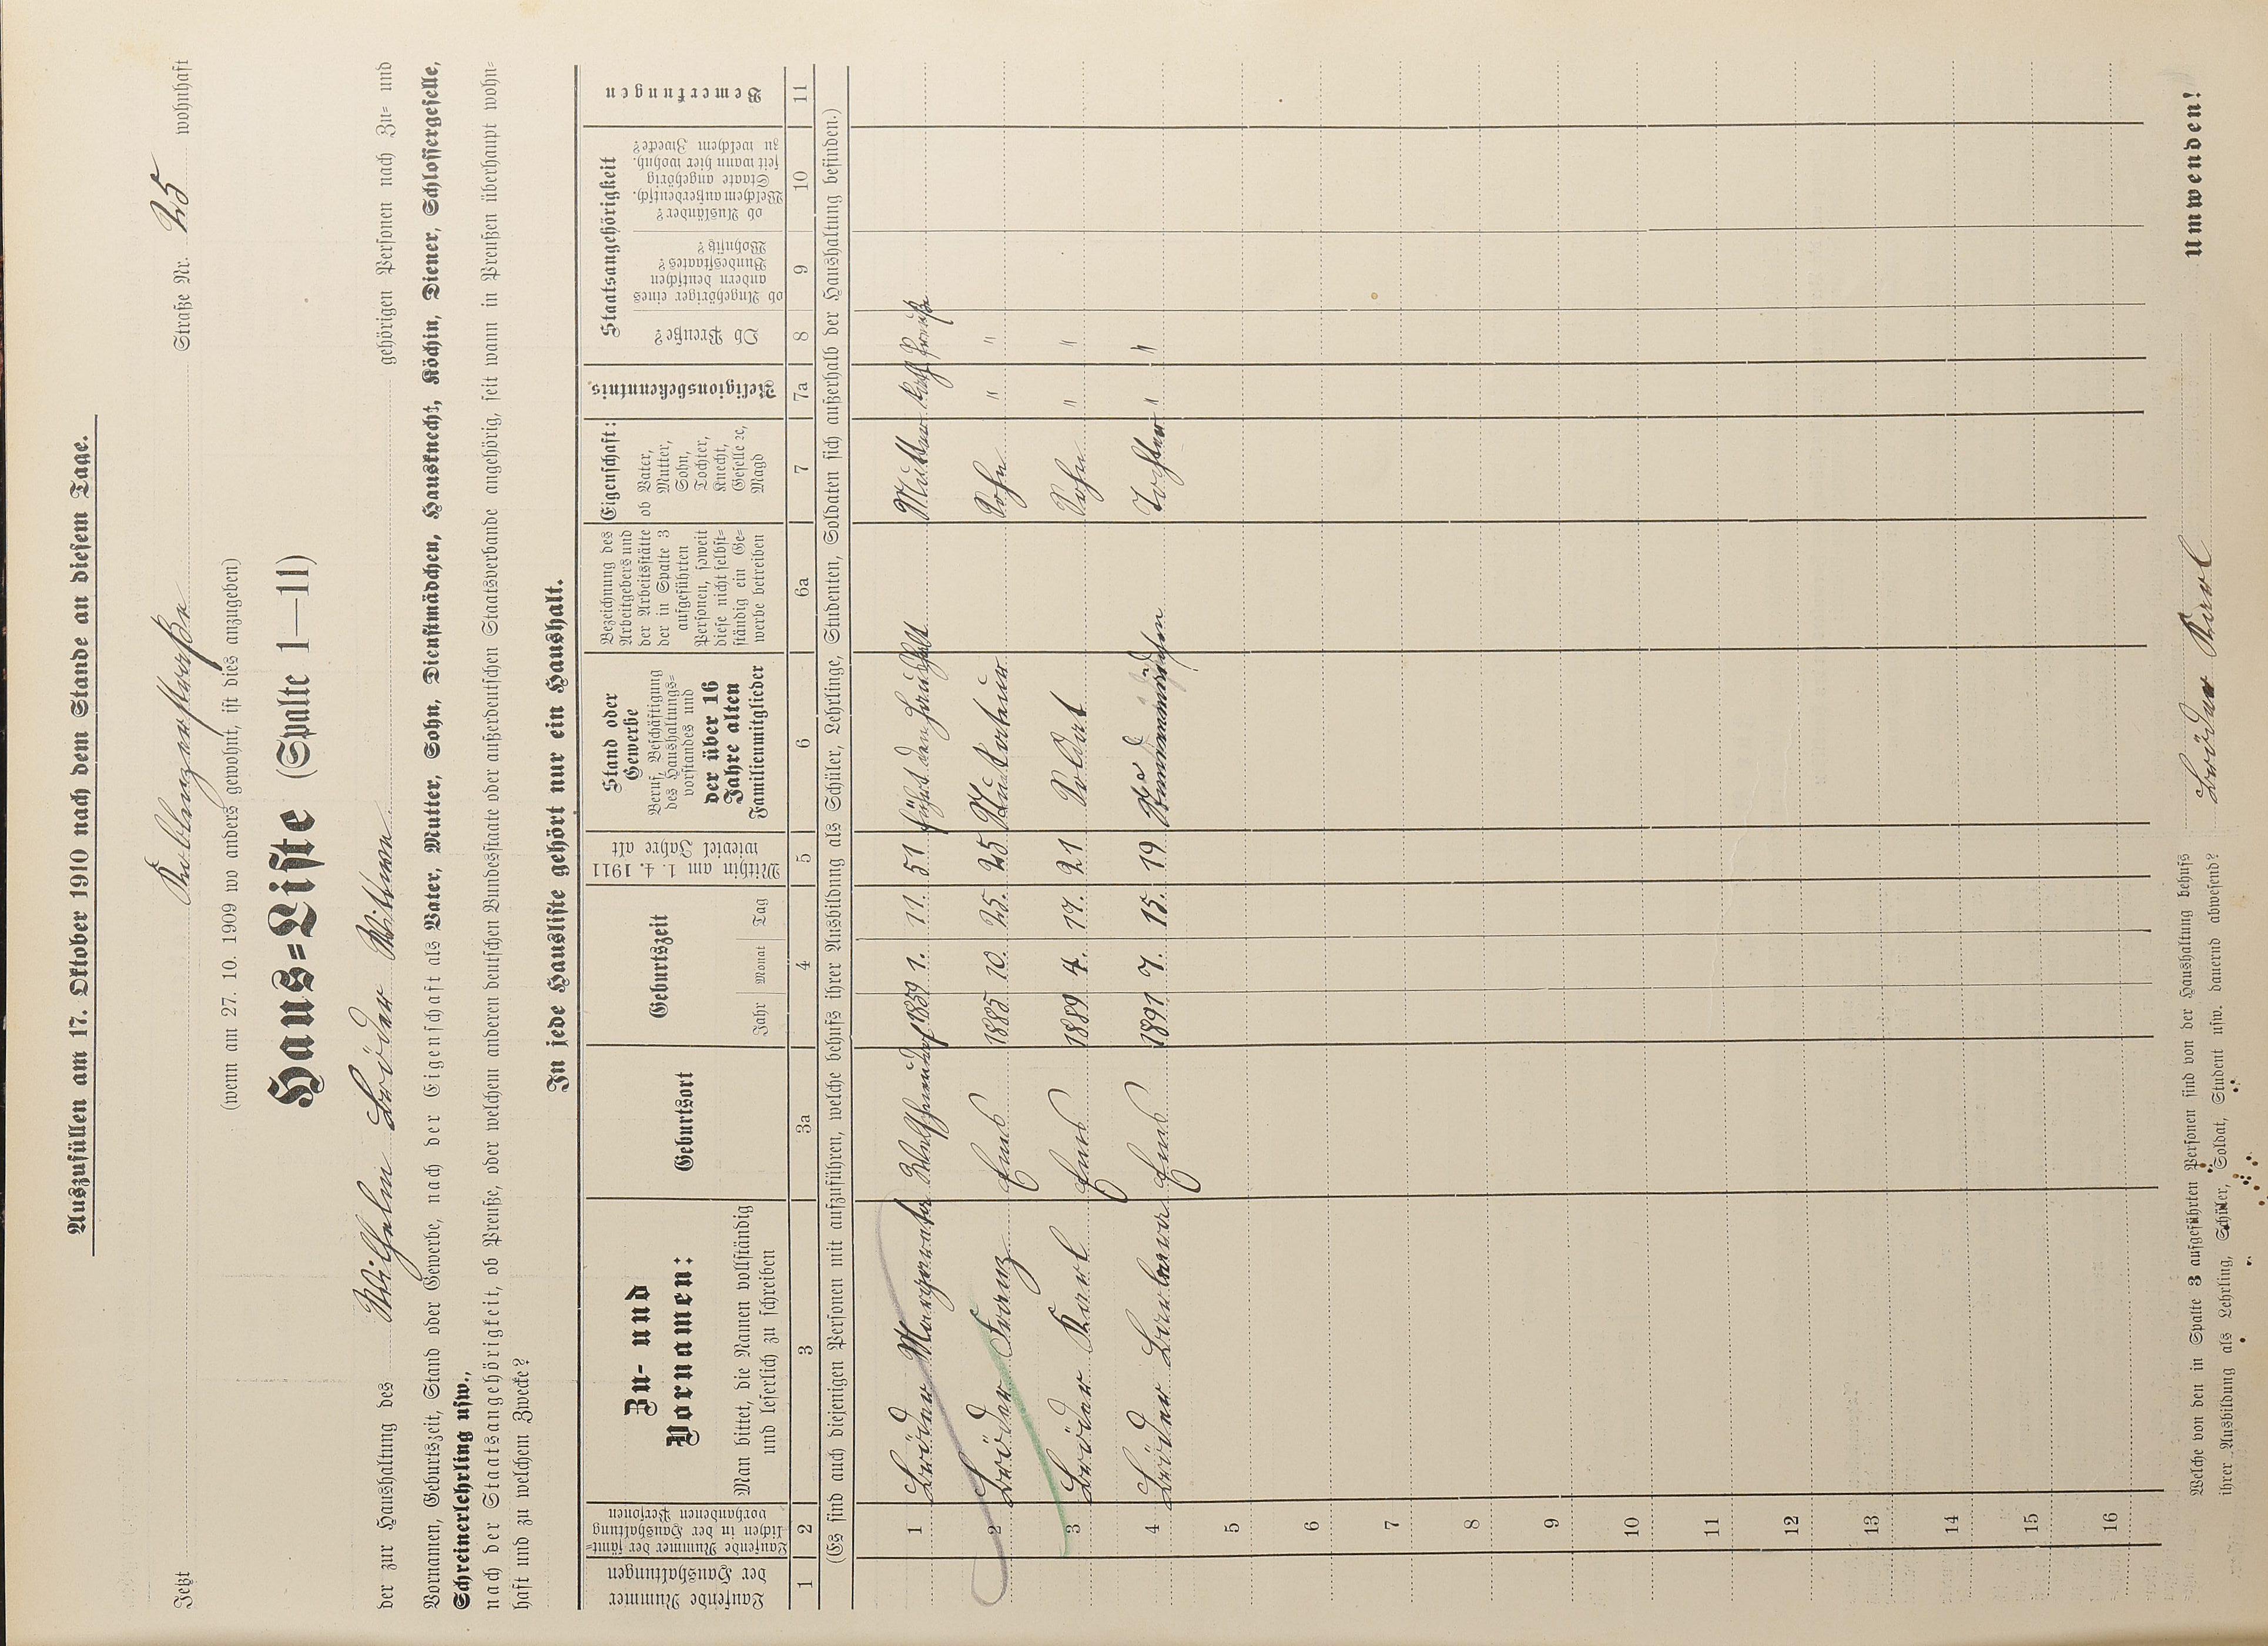 Auszufüllen am 17. Oktober 1910 nach dem Stande an diesem Tage.
Jetzt Koblenzerstraße Straße Nr. 25 wohnhaft
(wenn am 27. 10. 1909 wo anders gewohnt, ist dies anzugeben)
Haus=Liste (Spalte 1—11)
der zur Haushaltung des Wilhelm Bröder Witwe gehörigen Personen nach Zu= und
Vornamen, Geburtszeit, Stand oder Gewerbe, nach der Eigenschaft als Vater, Mutter, Sohn, Dienstmädchen, Hausknecht, Köchin, Diener, Schlossergeselle,
Schreinerlehrling usw.,
nach der Staatsangehörigkeit, ob Preuße, oder welchem anderen deutschen Bundesstaate oder außerdeutschen Staatsverbande angehörig, seit wann in Preußen überhaupt wohn=
haft und zu welchem Zwecke?
In jede Hausliste gehört nur ein Haushalt.
Laufende Nummer
der Haushaltungen
Laufende Nummer der sämt=
lichen in der Haushaltung
vorhandenen Personen
Zu- und
Vornamen:
Man bittet, die Namen vollständig
und leserlich zu schreiben
Geburtsort
Geburtszeit
Jahr Monat Tag
Mithin am 1. 4. 1911
wieviel Jahre alt
Stand oder
Gewerbe
Beruf, Beschäftigung
des Haushaltungs=
vorstandes und
der über 16
Jahre alten
Familienmitglieder
Bezeichnung des
Arbeitgebers und
der Arbeitsstätte
der in Spalte 3
aufgeführten
Personen, soweit
diese nicht selbst=
ständig ein Ge=
werbe betreiben
Eigenschaft:
ob Vater,
Mutter,
Sohn,
Tochter,
Knecht,
Geselle ec,
Magd
Religionsbekenntnis.
Staatsangehörigkeit
Ob Preuße?
ob Angehöriger eines
andern deutschen
Bundesstaates?
Wohnsitz?
ob Ausländer?
Welchem außerdeutsch.
Staate angehörig
seit wann hier wohnh.
zu welchem Zwecke?
Bemerkungen
1 2 3 3a 4 5 6 6a 7 7a 8 9 10 11
(Es sind auch diejenigen Personen mit aufzuführen, welche behufs ihrer Ausbildung als Schüler, Lehrlinge, Studenten, Soldaten sich außerhalb der Haushaltung befinden.)
1 Bröder Margareta 1859 1. 11. 51 führt den Haushalt Mutter Kath Preuße
2 Bröder Franz Ems 1885 10 25. 25 Sohn " "
3 Bröder Karl Ems 1889 4. 17. 21 Soldat Sohn " "
4 Bröder Barbara Ems 1891 7. 15. 19 Tochter " "
5
6
7
8
9
10
11
12
13
14
15
16
Welche von den in Spalte 3 aufgeführten Personen sind von der Haushaltung behufs
ihrer Ausbildung als Lehrling, Schüler, Soldat, Student usw. dauernd abwesend? Bröder Karl
Umwenden!